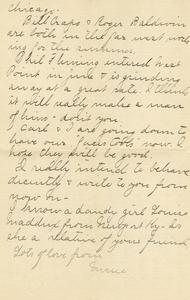 Chicago.
Bill Craps & Roger Baldwin
are both in the far west work-
ing for the summer.
Phil Fleming entered West
Point in June & is grinding
away at a great rate. I think
it will really make a man
of him - don't you.
Carl & I are going down to
have our faces took now. I
hope they will be good.
I really intend to behave
decently & write to you from
now on -
I know a dandy girl Louise
Maddux from Newport Ky - Is
she a relative of your friend
Lots of love from